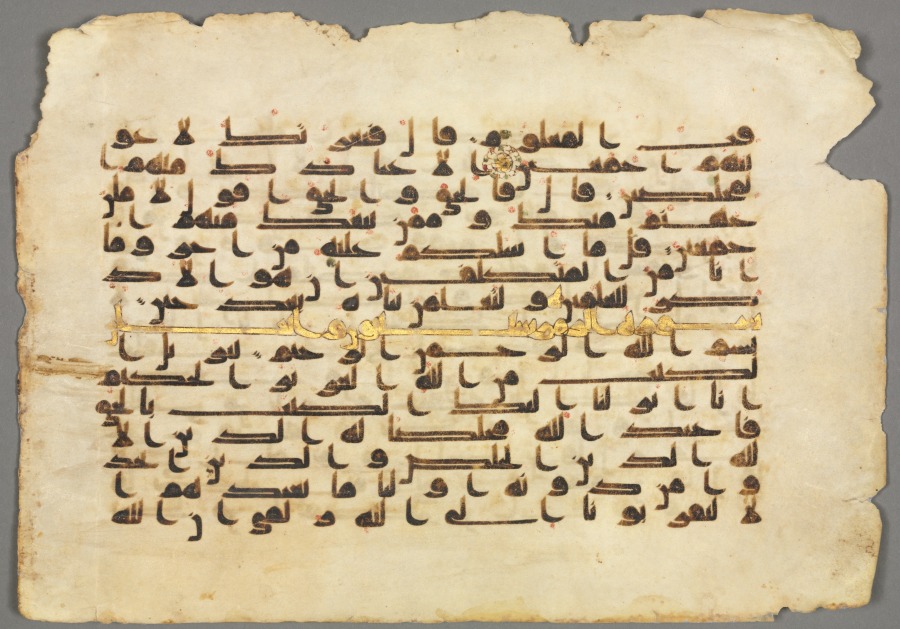 قت المعلوم قال فبعزتك لاغو
ينهم اجمعين الا عبادك منهم ا
لمخلصين قال فالحق والحق اقول لاملن
جهنم منك وممن تبعك منهم ا
جمعين قل ما اسلكم عليه من اجر وما
انا من المتكلفين ان هو الا ذ
كر للعلمين ولتعلمن نباه بعد حين
سورة الزمر سبعون
بسم الله الرحمن الرحيم تنزيل ا
لكتب من الله العزيز الحكيم
انا انزلنا اليك الكتب بالحق
فاعبد الله مخلصا له الدين الا
لله الدين الخالص والذين اتخذ
وا من دونه اوليا ما نعبدهم ا
لا ليقربونا الى الله زلفى ان الله